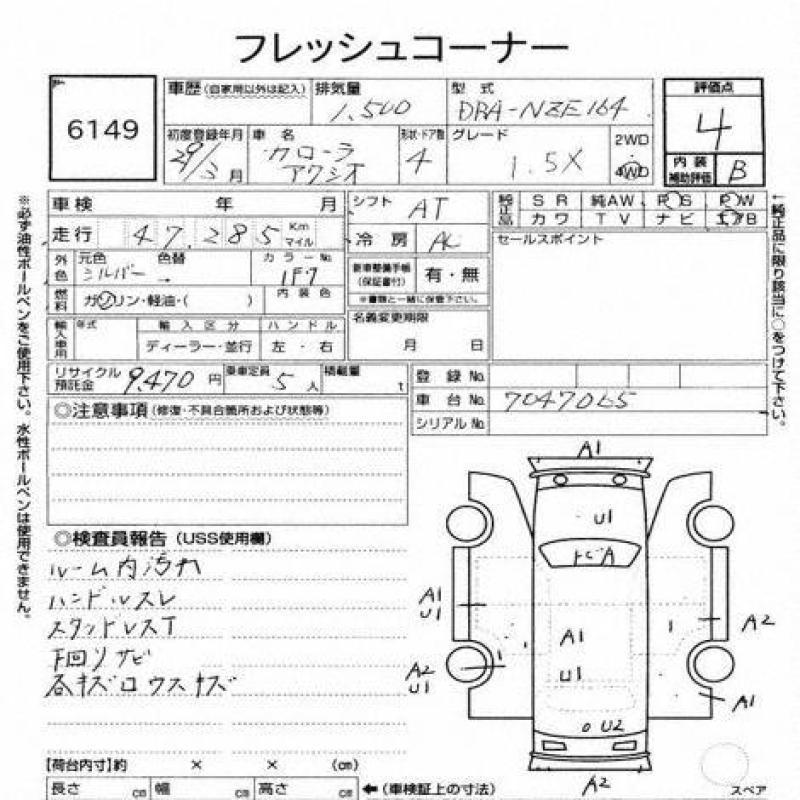 フレッシュコーナー
6149
車歴 (自家用以外は記入)
排気量
1,500
型式
DBA-NZE164
評価点
4
初度登録年月
29/3月
車名
カローラ
アクシオ
形状・ドア数
4
グレード
1.5X
2WD
4WD
内装
補助評価
B
車検 年 月
シフト
AT
純正品
SR 純AW PS PW
カワ TV ナビ エアB
走行
47,285 Km
マイル
冷房
AC
セールスポイント
外色
元色
シルバー
色替
→
カラーNo
1F7
新車整備手帳
(保証書付)
有・無
※書類と一緒に保管下さい。
燃料
ガソリン・軽油・( )
内装色
輸入車用
年式
輸入区分
ハンドル
ディーラー・並行
左・右
名義変更期限
月 日
リサイクル
預託金
9,470円
乗車定員
5人
積載量
t
登録No.
車台No.
7047065
シリアルNo.
◎注意事項 (修復・不具合箇所および状態等)
◎検査員報告 (USS使用欄)
ルーム内汚れ
ハンドルスレ
スタッドレスT
下回りサビ
各キズ口ウスキズ
A1
U1
トビA
A1
U1
A2
U1
A1
U1
A2
A1
U2
A2
スペア
【荷台内寸】約 × × (cm)
長さ cm 幅 cm 高さ cm ←(車検証上の寸法)
※必ず油性ボールペンをご使用下さい。水性ボールペンは使用できません。
←純正品に限り該当に○をつけて下さい。